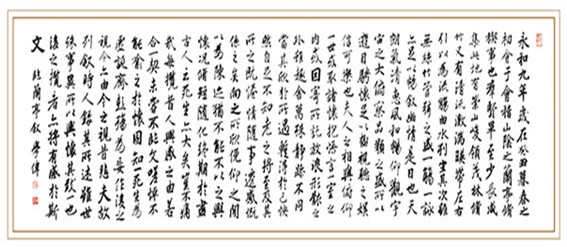 永和九年歲在癸丑暮春之
初會于會稽山陰之蘭亭脩
禊事也羣賢畢至少長咸
集此地有崇山峻領茂林脩
竹又有清流激湍暎帶左右
引以為流觴曲水列坐其次雖
無絲竹管弦之盛一觴一詠
亦足以暢敘幽情是日也天
朗氣清惠風和暢仰觀宇
宙之大俯察品類之盛所以
遊目騁懷足以極視聽之娛
信可樂也夫人之相與俯仰
一世或取諸懷抱悟言一室之
內或因寄所託放浪形骸之
外雖趣舍萬殊靜躁不同
當其欣於所遇暫得於己快
然自足不知老之將至及其
所之既惓情隨事遷感慨
係之矣向之所欣俛仰之間
以為陳迹猶不能不以之興
懷況脩短隨化終期於盡
古人云死生亦大矣豈不痛
哉每攬昔人興感之由若
合一契未嘗不臨文嗟悼不
能喻之於懷固知一死生為
虛誕齊彭殤為妄作後之
視今亦由今之視昔悲夫故
列敘時人錄其所述雖世
殊事異所以興懷其致一也
後之攬者亦將有感於斯
文 臨蘭亭敘